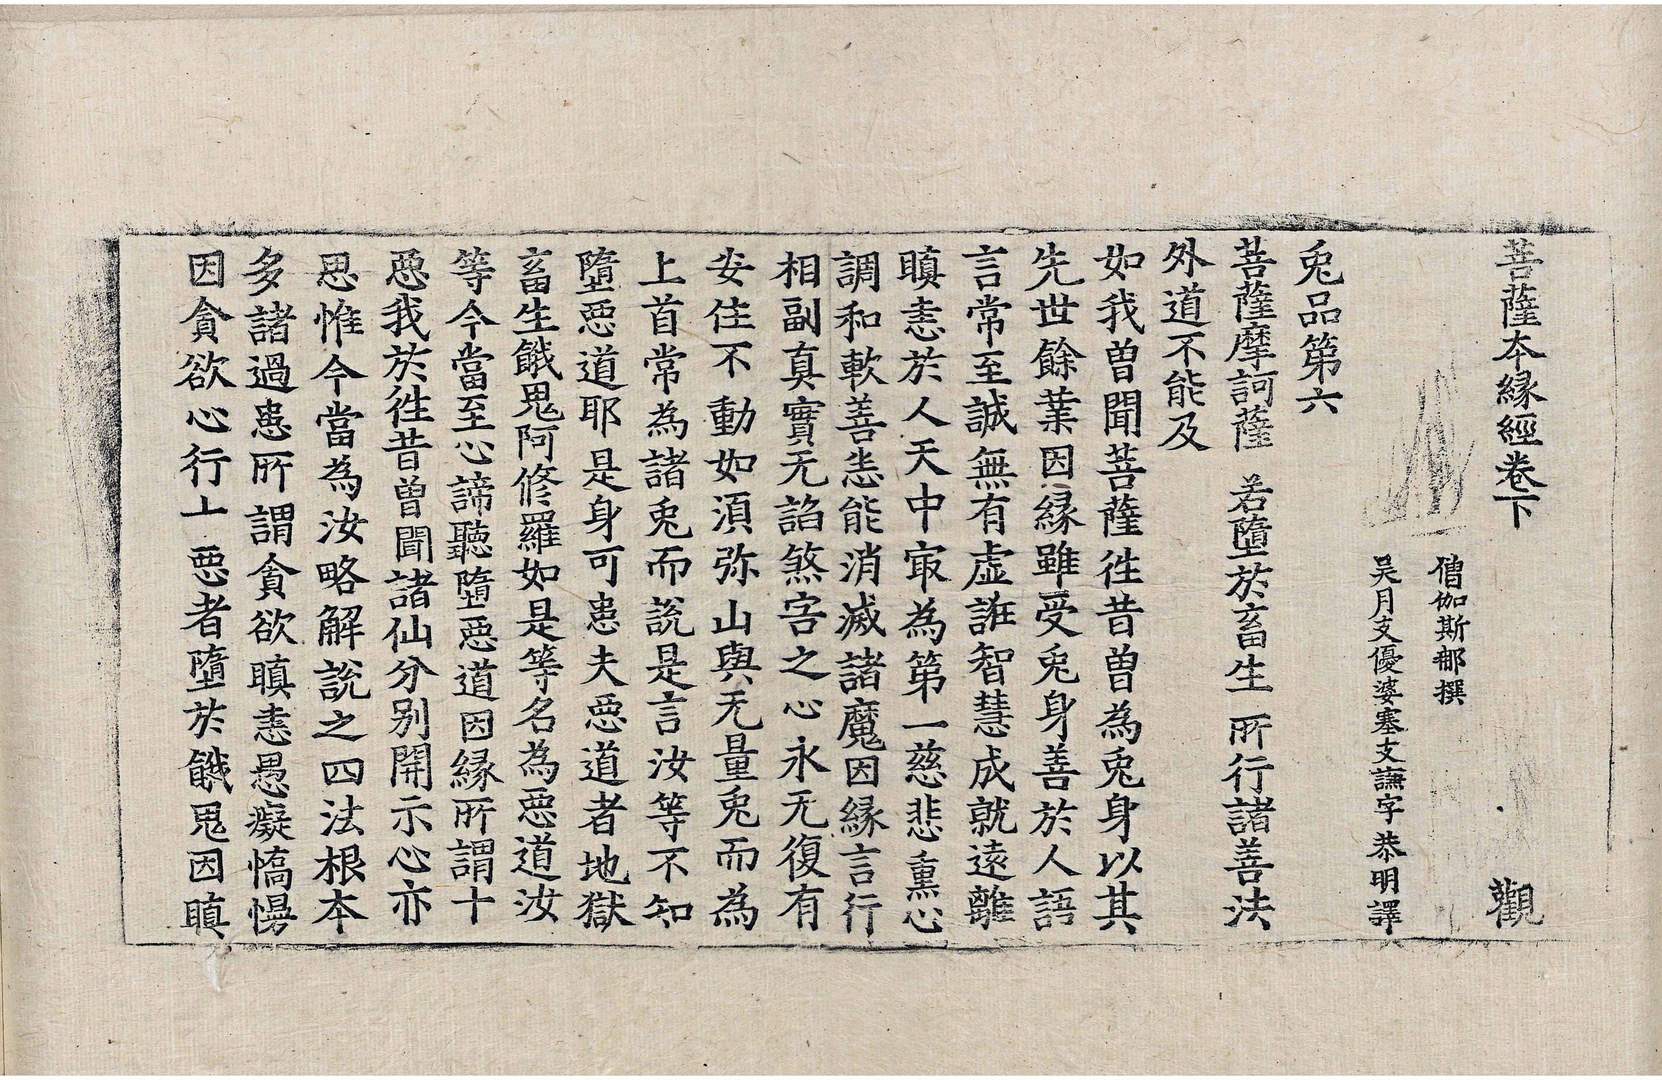 菩薩本緣經卷下　觀
僧伽斯那撰
吳月支優婆塞支謙字恭明譯
兎品第六
菩薩摩訶薩　若墮於畜生　所行諸善法
外道不能及
如我曾聞菩薩徃昔曾為兎身以其
先世餘業因緣雖受兎身善於人語
言常至誠無有虛誑智慧成就遠離
瞋恚於人天中㝡為第一慈悲熏心
調和軟善悉能消滅諸魔因緣言行
相副真實无諂煞害之心永无復有
安住不動如須弥山與无量兎而為
上首常為諸兎而說是言汝等不知
墮惡道耶是身可患夫惡道者地獄
畜生餓鬼阿修羅如是等名為惡道汝
等今當至心諦聽墮惡道因緣所謂十
惡我於徃昔曾聞諸仙分別開示心亦
思惟今當為汝略解說之四法根本
多諸過患所謂貪欲瞋恚愚癡憍慢
因貪欲心行十惡者墮於餓鬼因瞋